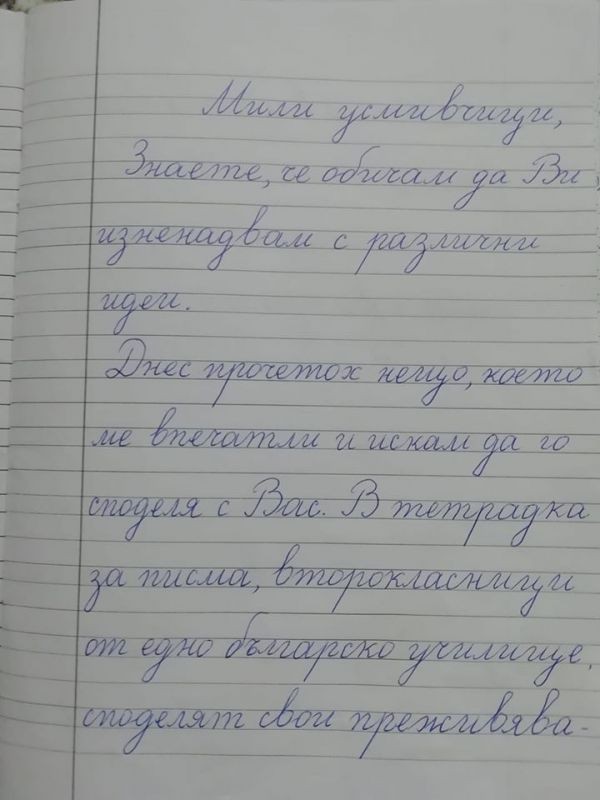 Мили усмивчици,
Знаете, че обичам да Ви
изненадвам с различни
идеи.
Днес прочетох нещо, което
ме впечатли и искам да го
споделя с Вас. В тетрадка
за писма, второкласници
от едно българско училище,
споделят свои преживява-